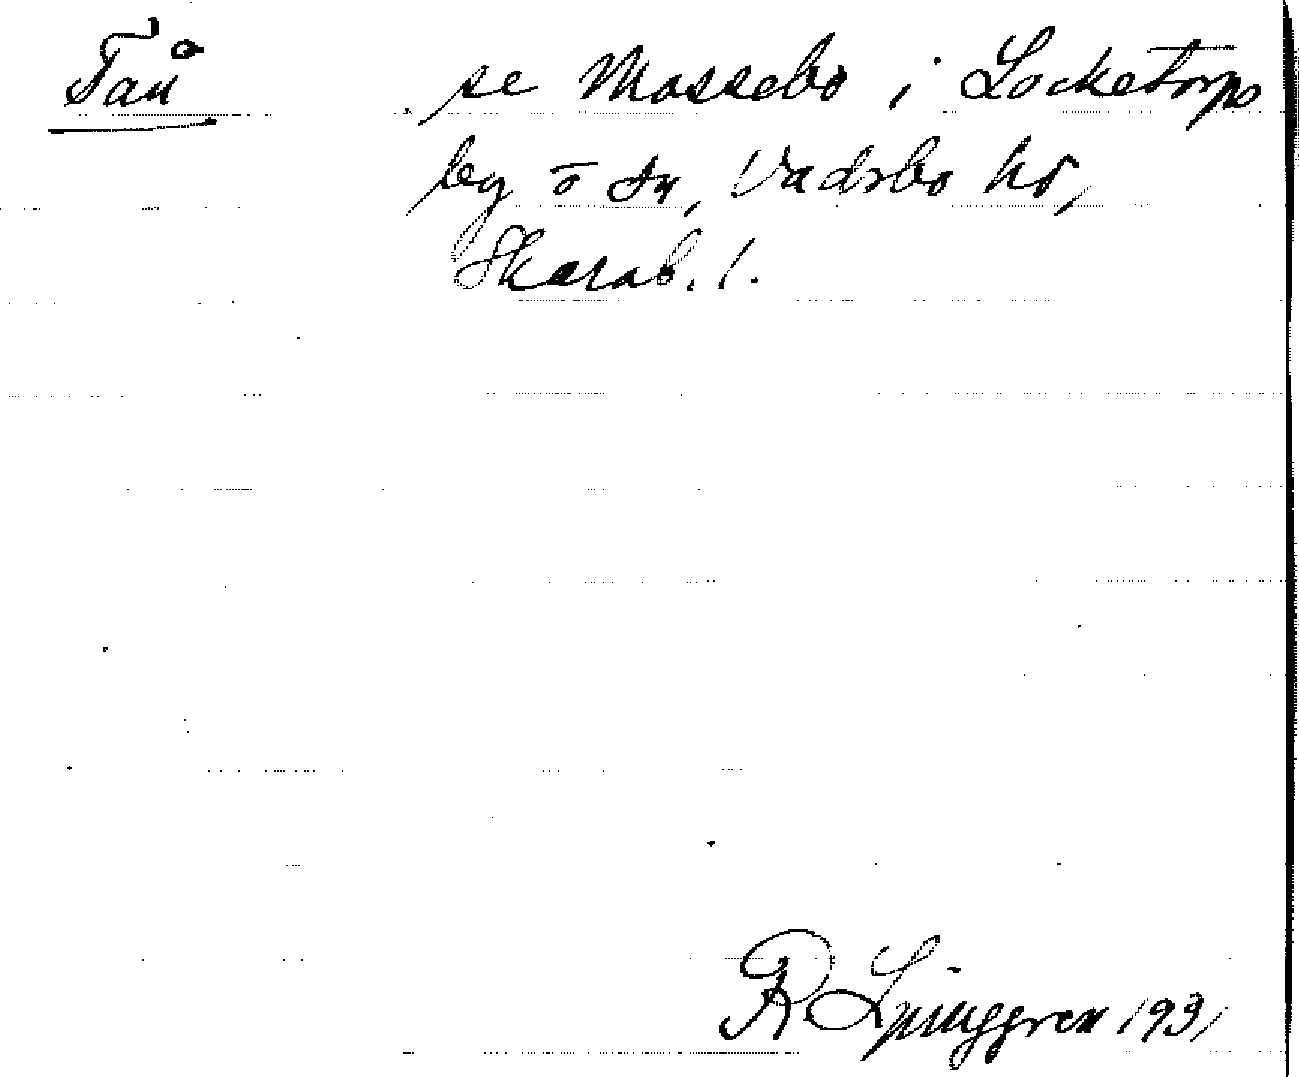 Taŭ se Mossebo i Locketorps
by ō sn, Vadsbo hd,
Skarab. l.
R Ljunggren 1931